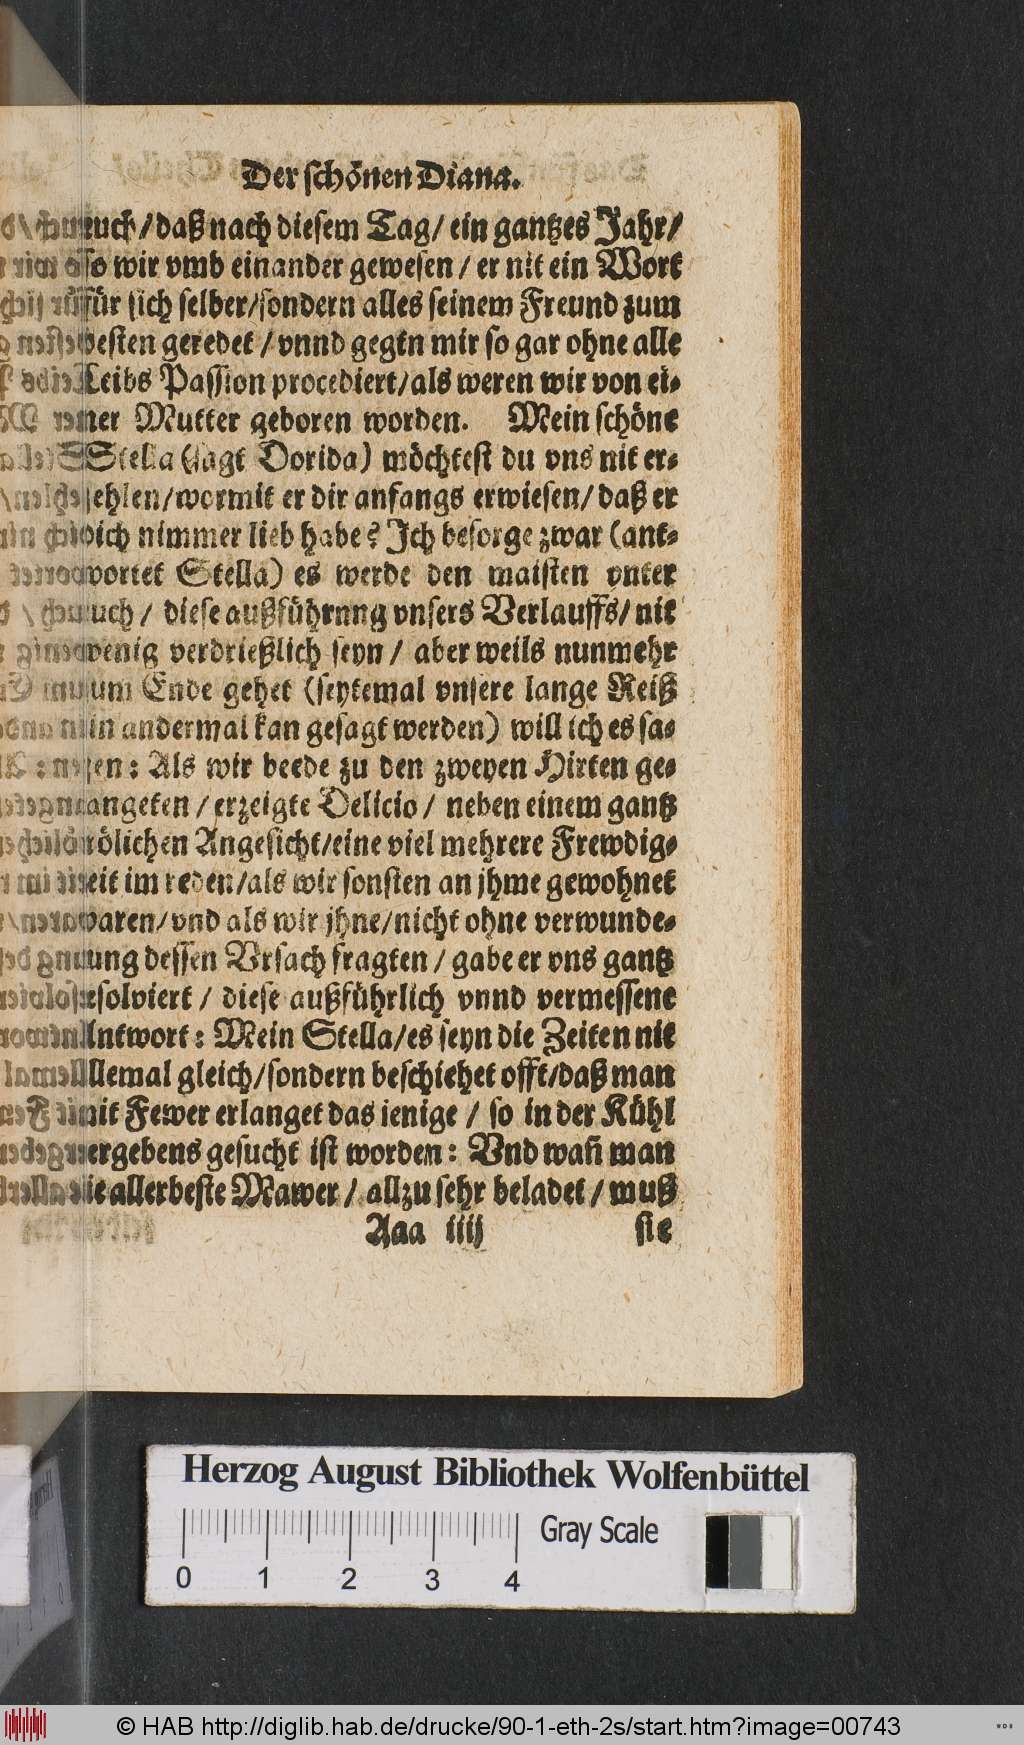 Der schönen Diana.
euch / daß nach diesem Tag / ein gantzes Jahr /
so wir vmb einander gewesen / er nit ein Wort
für sich selber / sondern alles seinem Freund zum
besten geredet / vnnd gegen mir so gar ohne alle
Leibs Passion procediert / als weren wir von ei-
ner Mutter geboren worden. Mein schöne
Stella (sagt Dorida) möchtest du vns nit er-
zehlen / wormit er dir anfangs erwiesen / daß er
dich nimmer lieb habe? Ich besorge zwar (ant-
wortet Stella) es werde den maisten vnter
euch / diese außführnng vnsers Verlauffs / nit
wenig verdrießlich seyn / aber weils nunmehr
zum Ende gehet (seytemal vnsere lange Reiß
ein andermal kan gesagt werden) will ich es sa-
gen: Als wir beede zu den zweyen Hirten ge-
langeten / erzeigte Delicio / neben einem gantz
frölichen Angesicht / eine viel mehrere Frewdig-
keit im reden / als wir sonsten an jhme gewohnet
waren / vnd als wir jhne / nicht ohne verwunde-
rung dessen Vrsach fragten / gabe er vns gantz
resolviert / diese außführlich vnnd vermessene
Antwort: Mein Stella / es seyn die Zeiten nit
allemal gleich / sondern beschiehet offt / daß man
mit Fewer erlanget das jenige / so in der Kühl
vergebens gesucht ist worden: Vnd wañ man
die allerbeste Mawer / allzu sehr beladet / muß
Aaa iiij sie
Herzog August Bibliothek Wolfenbüttel
Gray Scale
0 1 2 3 4
© HAB http://diglib.hab.de/drucke/90-1-eth-2s/start.htm?image=00743